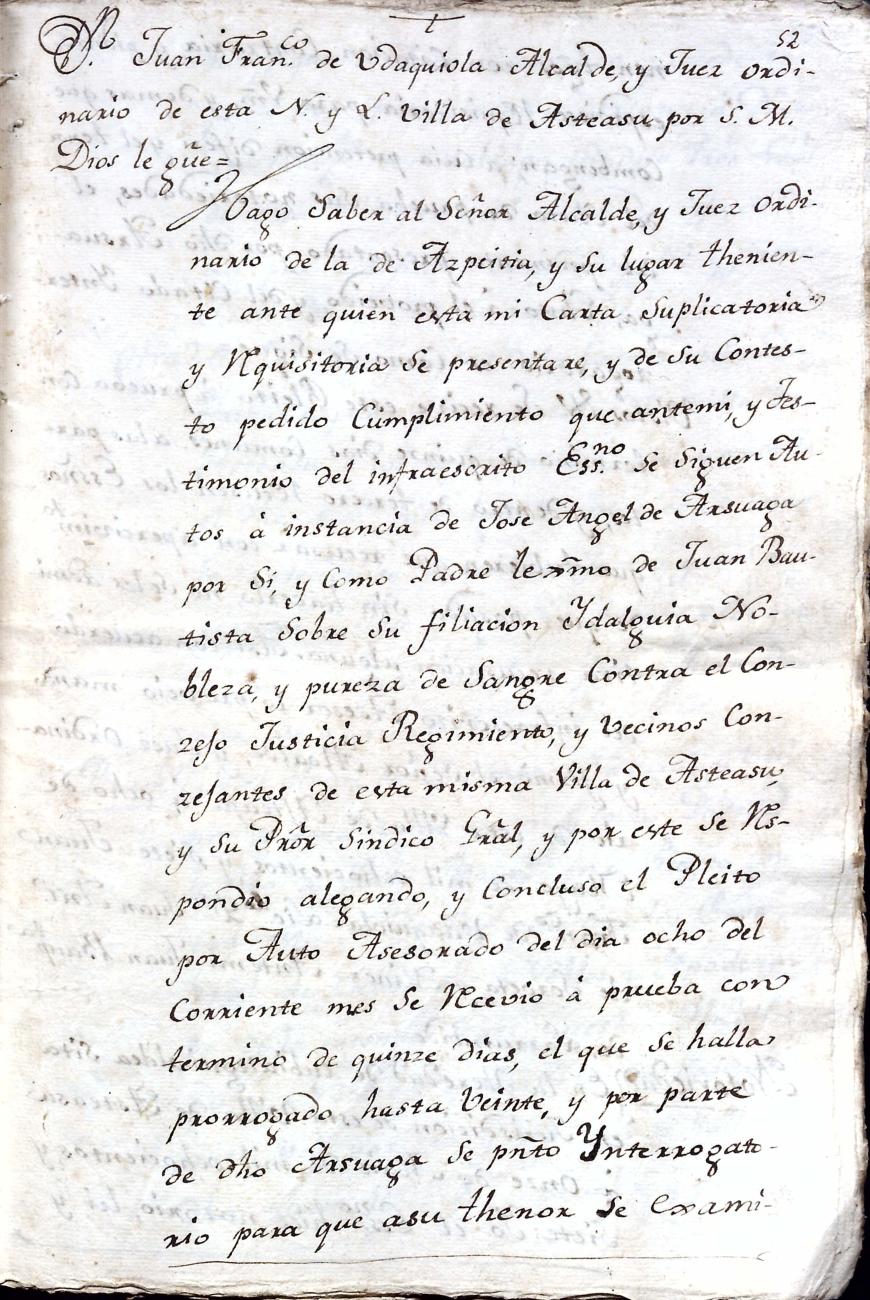 52
Dn. Juan Franco. de Udaquiola Alcalde, y Juez ordi-
nario de esta N. y L. Villa de Asteasu por S. M.
Dios le gũe=
Hago Saber al Señor Alcalde, y Juez ordi-
nario de la de Azpeitia, y su lugar thenien-
te ante quien esta mi Carta Suplicatoria
y Requisitoria se presentare, y de su Contes-
to pedido Cumplimiento que antemi, y tes-
timonio del infraescrito Essno. se siguen Au-
tos à instancia de Jose Angel de Arsuaga
por si, y Como Padre lexm̃o de Juan Bau-
tista sobre su filiacion Ydalguia No-
bleza, y pureza de Sangre Contra el Con-
zejo Justicia Regimiento, y vecinos Con-
zejantes de esta misma Villa de Asteasu,
y su Prõr Sindico Grãl, y por este se Res-
pondio alegando, y Concluso el Pleito
por Auto Asesorado del dia ocho del
Corriente mes se Recevio à prueba con
termino de quinze dias, el que se halla
prorrogado hasta Veinte, y por parte
de dho Arsuaga se pñto Ynterrogato-
rio para que asu thenor se exami-